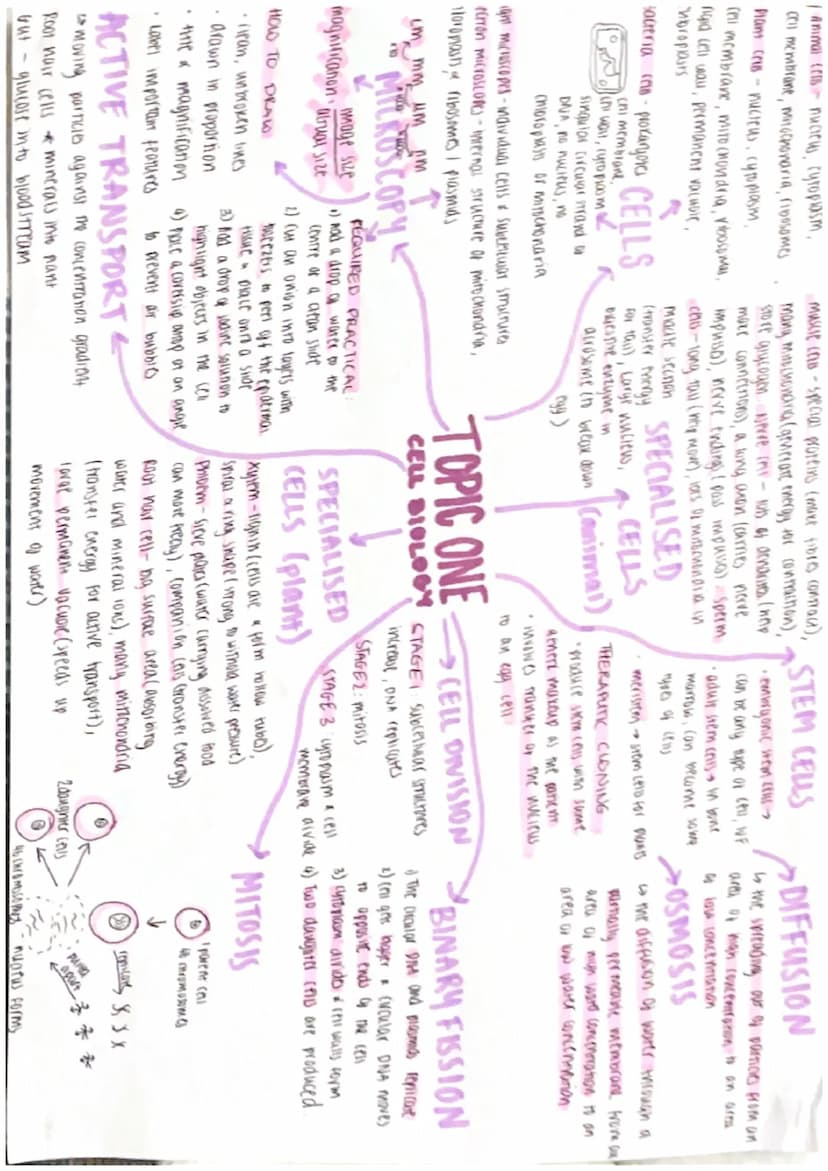 TOPIC ONE
CELL BIOLOGY
CELLS
Animal cell - nucleus, cytoplasm,
cell membrane, mitochondria, ribosomes
Plant cell - nucleus, cytoplasm,
cell membrane, mitochondria, ribosomes,
rigid cell wall, permanent vacuole,
chloroplasts
bacteria cell - prokaryote
cell membrane,
cell wall, cytoplasm
singular circular strand of
DNA, no nucleus, no
chloroplast or mitochondria
MICROSCOPY
light microscopes - individual cells & subcellular structures
electron microscopes - internal structure of mitochondria,
chloroplasts & ribosomes / plasmids
cm mm μm nm
magnification = image size
actual size
HOW TO DRAW
· clean, unbroken lines
· drawn in proportion
· title & magnification
· label important features
REQUIRED PRACTICAL:
1) Add a drop of water to the
centre of a clean slide
2) Cut an onion into layers with
tweezers to peel off the epidermal
tissue & place onto a slide
3) Add a drop of iodine solution to
highlight objects in the cell
4) Place a coverslip drop at an angle
to prevent air bubbles
ACTIVE TRANSPORT
↳ moving particles against the concentration gradient
Root hair cells → minerals into plant
Gut - glucose into bloodstream
SPECIALISED
CELLS
(animal)
muscle cell - special proteins (make fibres contract),
many mitochondria (generate energy for contraction),
store glycogen. nerve cell - lots of dendrites (help
make connections), a long axon (carries nerve
impulse), nerve endings (pass impulses). sperm
cell - long tail (help move), lots of mitochondria in
middle section
(transfer energy
for tail), large nucleus,
digestive enzyme in
acrosome (to break down
egg)
SPECIALISED
CELLS (plant)
xylem - lignin (cells die & form hollow tubes),
spiral & ring shape (strong to withstand water pressure)
Phloem - sieve plates (water carrying dissolved food
can move freely), companion cells (transfer energy)
Root hair cell - big surface area (absorbing
water and mineral ions), many mitochondria
(transfer energy for active transport),
large permanent vacuole (speeds up
movement of water)
STEM CELLS
· embryonic stem cells →
can be any type of cell, IVF
· adult stem cells → in bone
marrow, can become some
types of cells
· meristem → stem cells for plants
THERAPEUTIC CLONING
· produce stem cells with same
genetic makeup as the patient
· involves transfer of the nucleus
to an egg cell
DIFFUSION
↳ the spreading out of particles from an
area of high concentration to an area
of low concentration
OSMOSIS
↳ the diffusion of water through a
partially permeable membrane from an
area of high water concentration to an
area of low water concentration
CELL DIVISION
STAGE 1: subcellular structures
increase, DNA replicates
STAGE 2: mitosis
STAGE 3: cytoplasm & cell
membrane divide
BINARY FISSION
1) The circular DNA and plasmids replicate
2) Cell gets bigger & circular DNA moves
to opposite ends of the cell
3) cytoplasm divides & cell walls form
4) Two daughter cells are produced
MITOSIS
1 parent cell
46 chromosomes
replicate
pulled
apart
2 daughter cells
46 chromosomes
nucleus forms